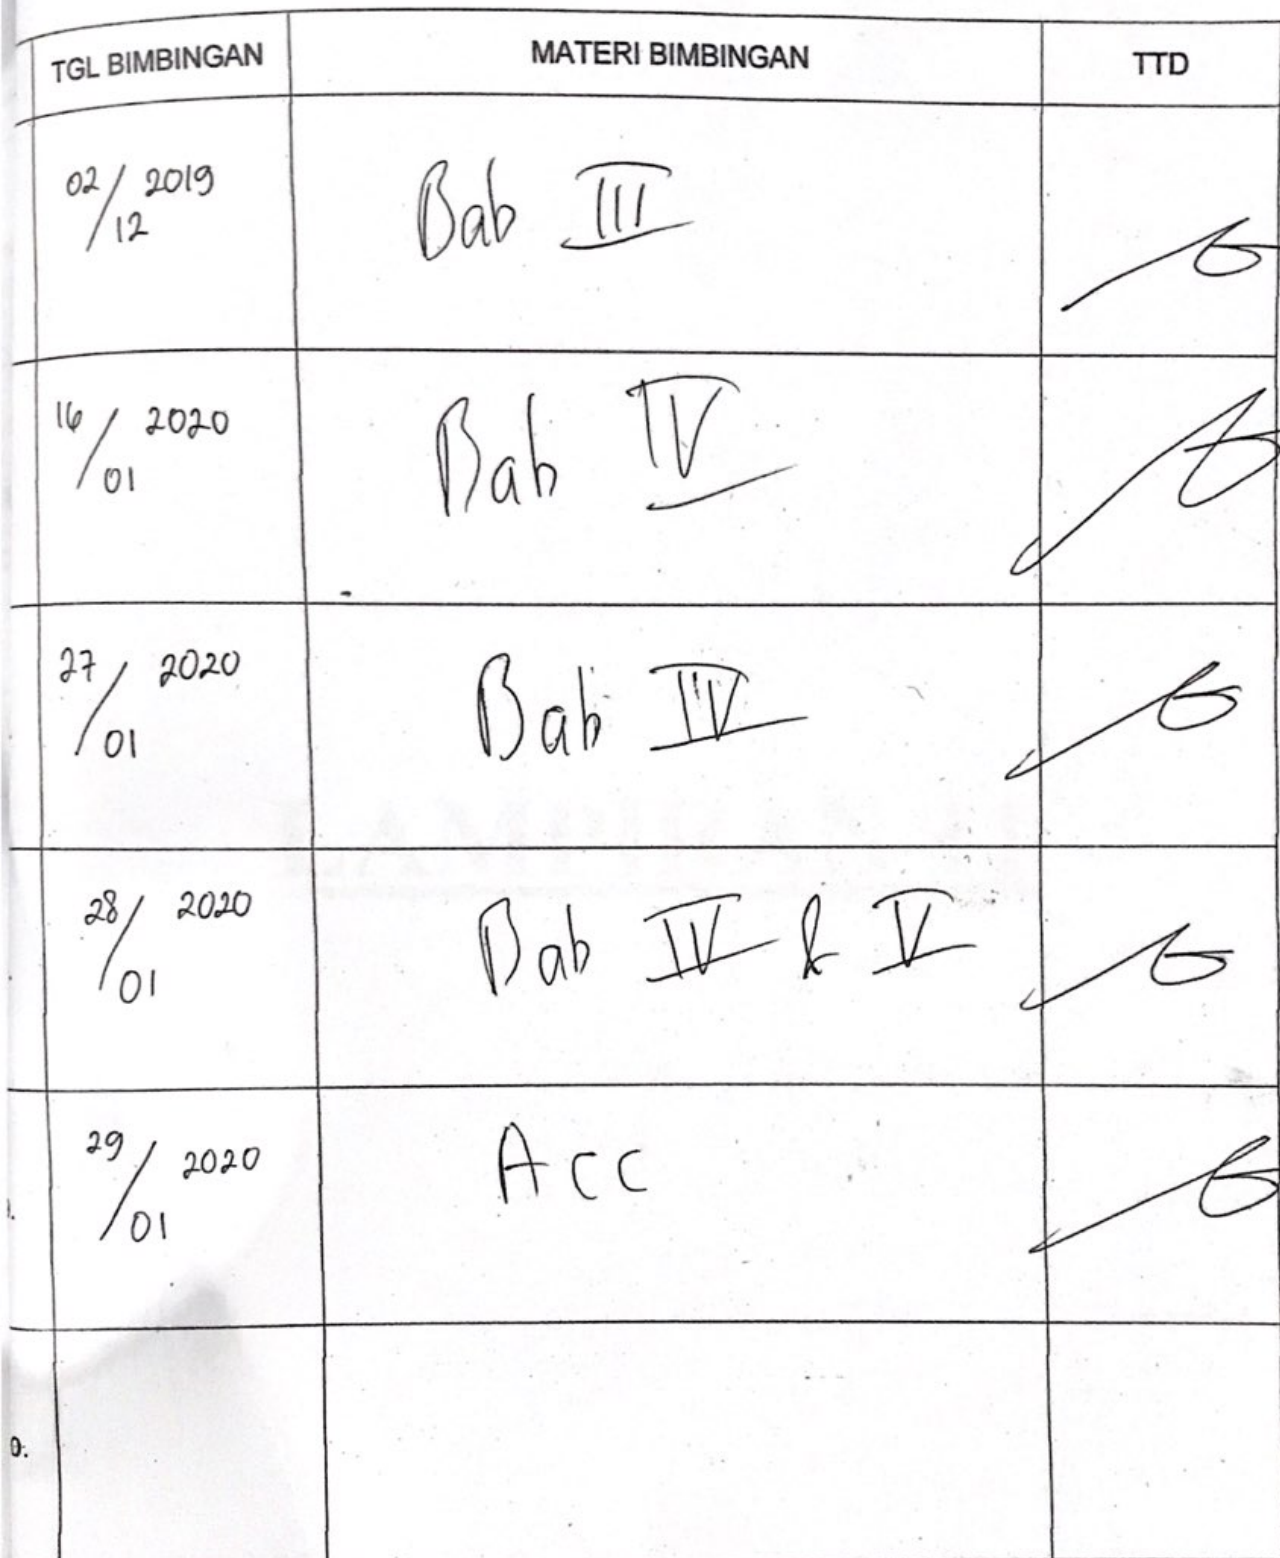 TGL BIMBINGAN MATERI BIMBINGAN TTD
02/12 2019 Bab III
16/01 2020 Bab IV
27/01 2020 Bab IV
28/01 2020 Bab IV & V
29/01 2020 Acc
0.